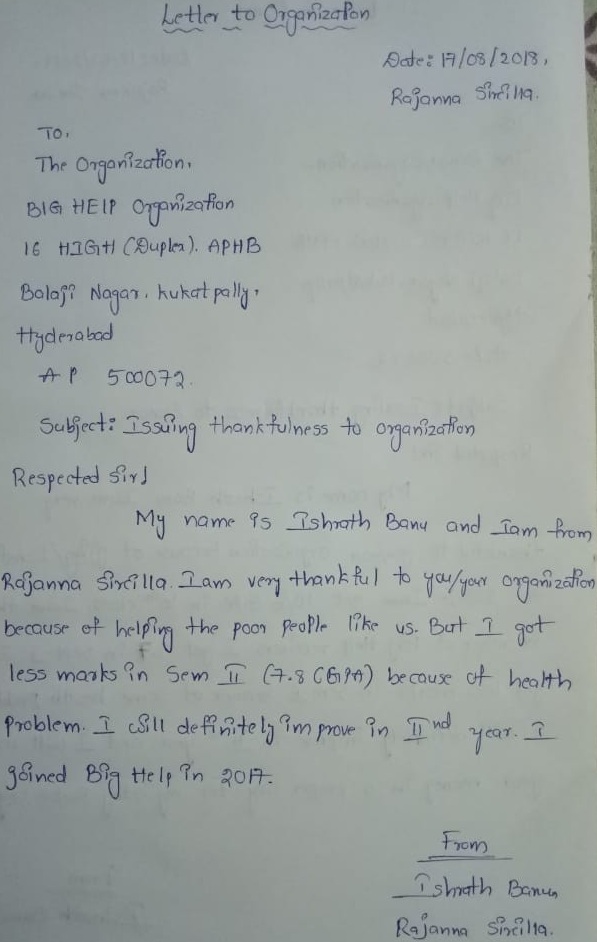 Letter to Organization
Date: 17/08/2018,
Rajanna Sircilla.
To,
The Organization,
BIG HELP Organization
16 HIGH (Duplex). APHB
Balaji Nagar, kukatpally,
Hyderabad
AP 500072.
Subject: Issuing thankfulness to organization
Respected Sir,
My name is Ishrath Banu and Iam from
Rajanna Sircilla. Iam very thankful to you/your organization
because of helping the poor people like us. But I got
less marks in Sem II (7.8 CGPA) because of health
Problem. I will definitely improve in IInd year. I
joined Big Help in 2017.
From
Ishrath Banu
Rajanna Sircilla.